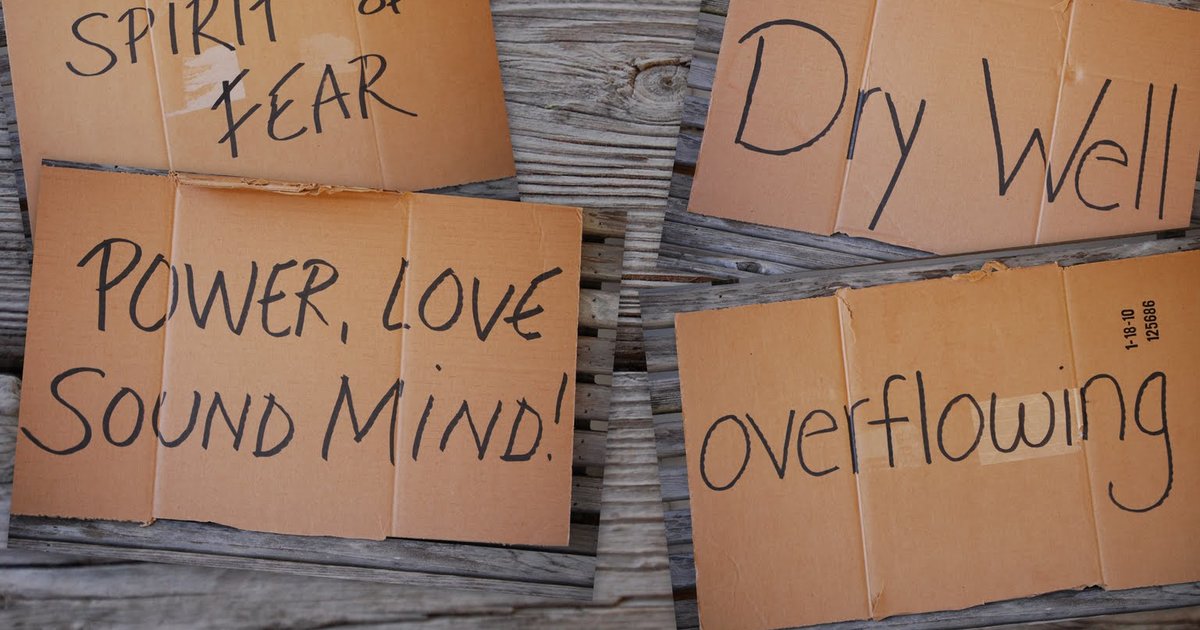 SPIRIT of
FEAR
POWER, LOVE
SOUND MIND!
Dry Well
1-18-10
125686
overflowing